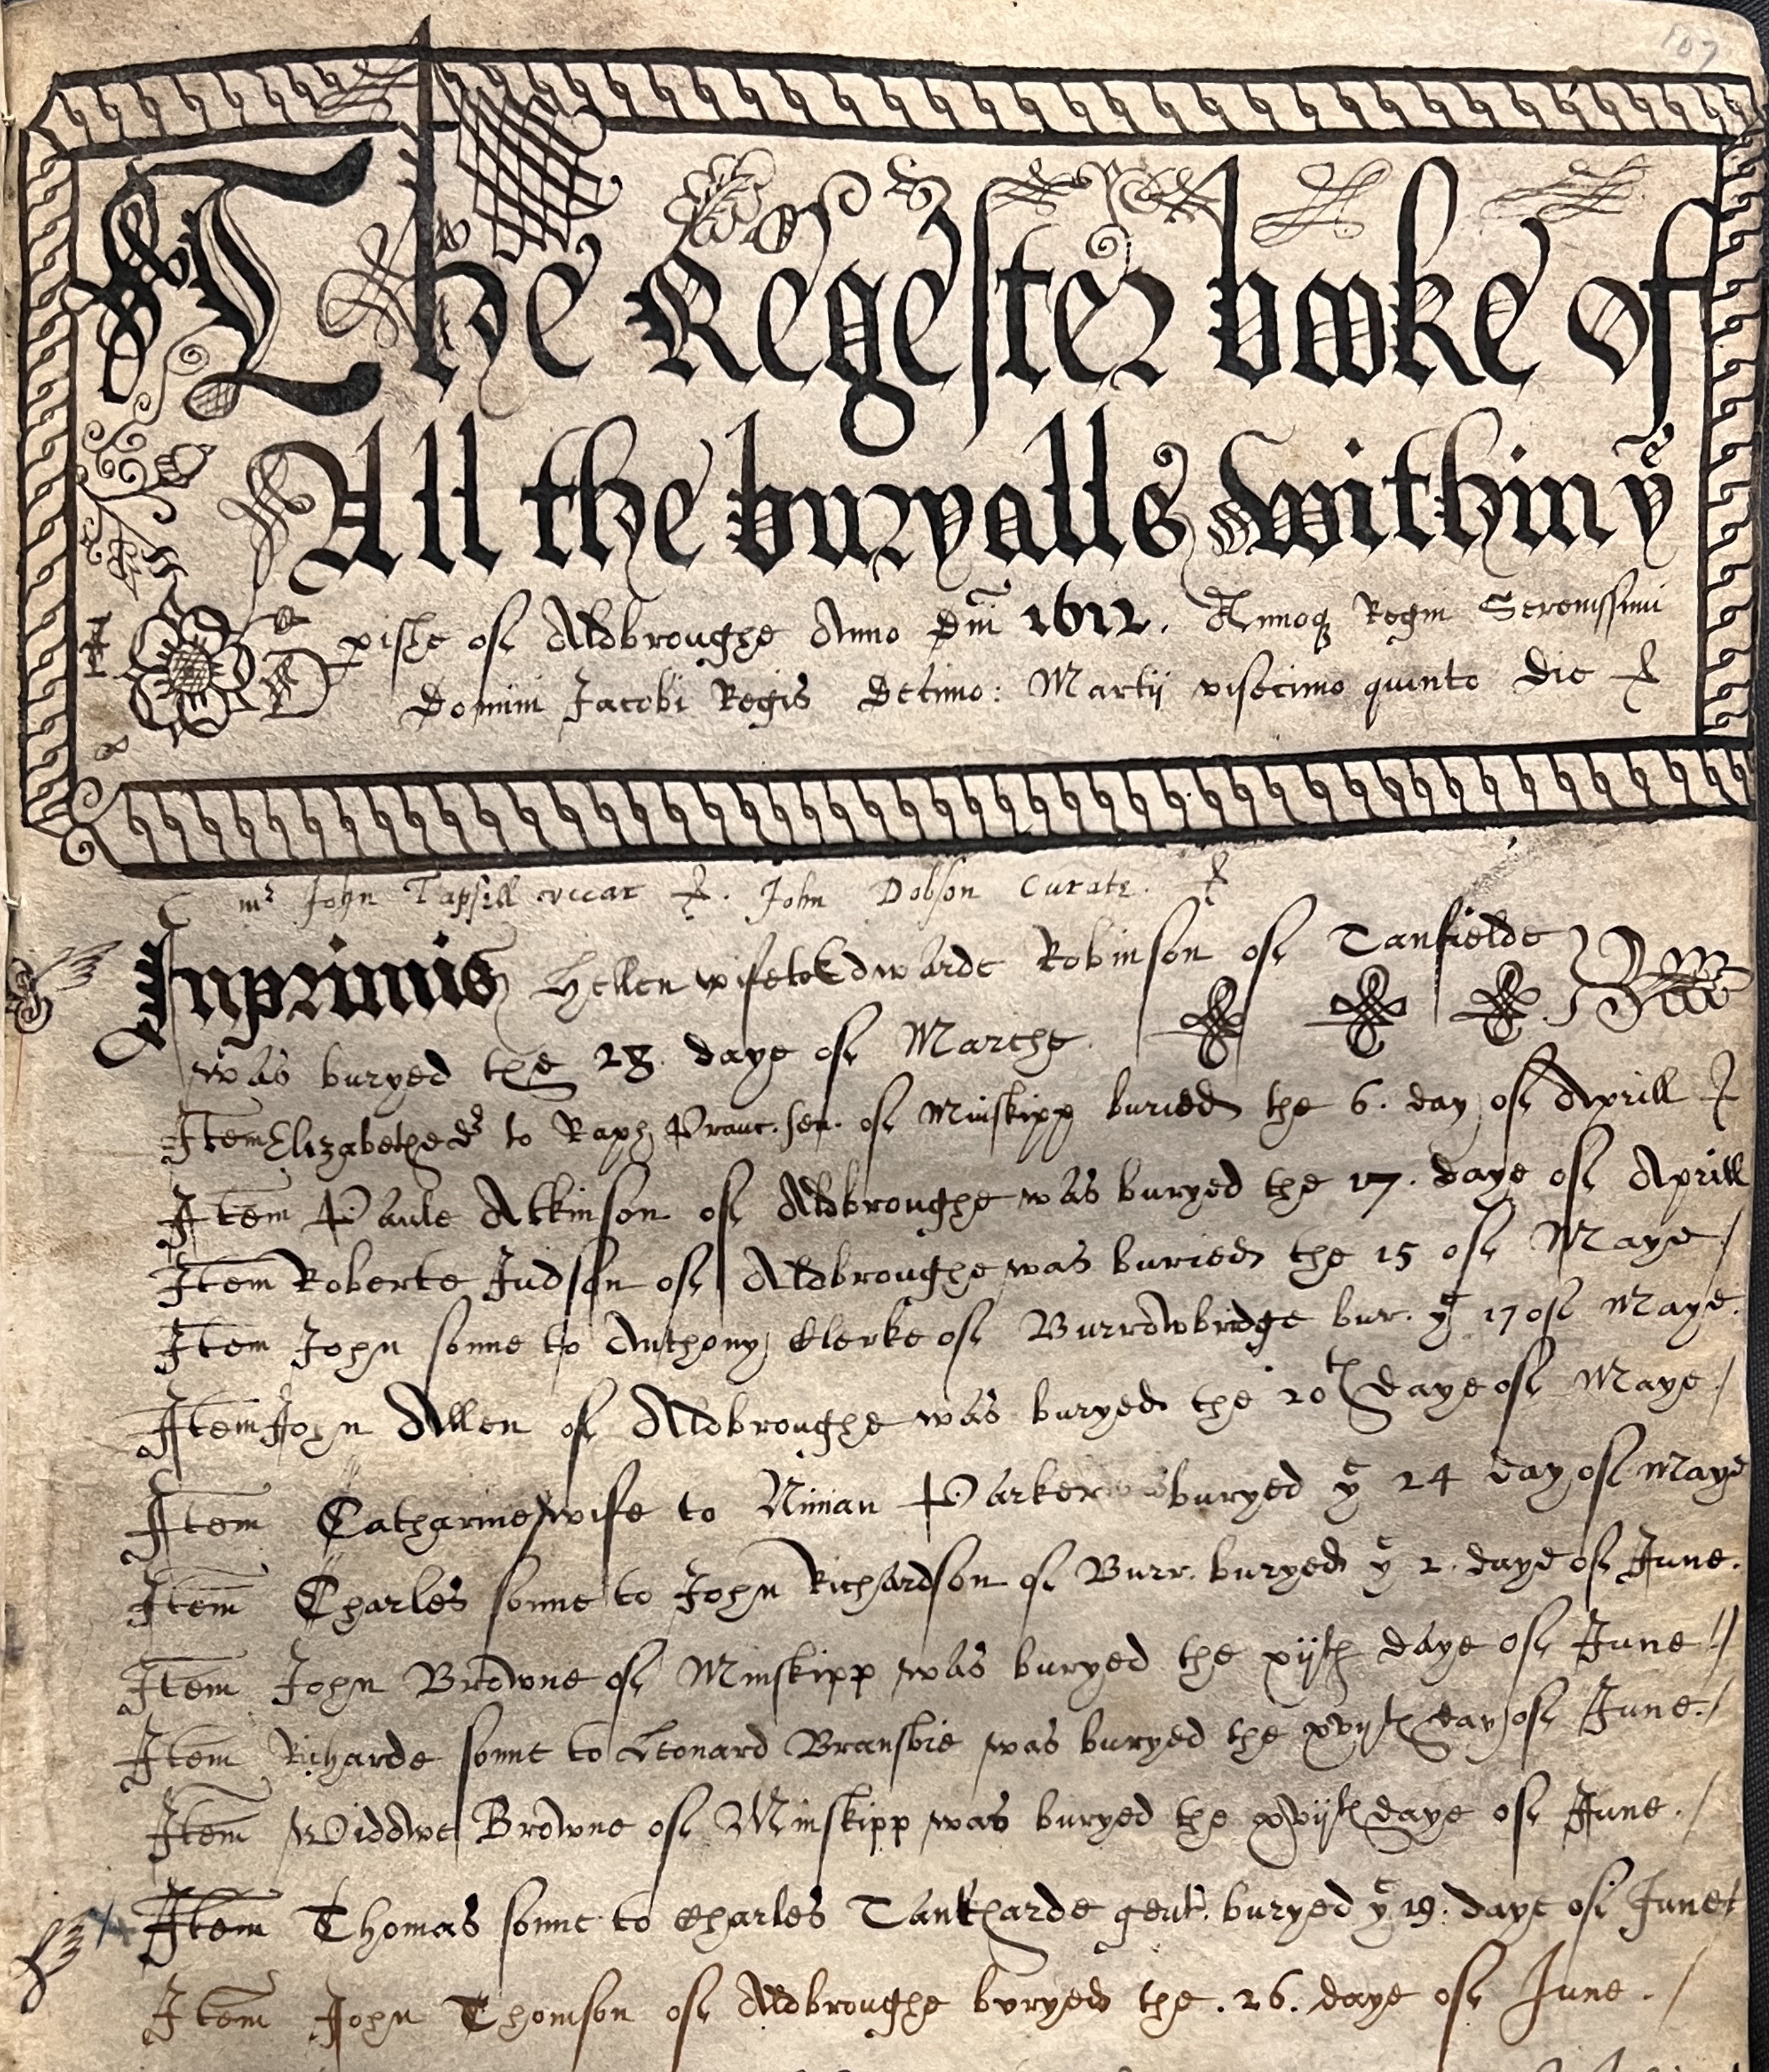 107
The Regester booke of
All the buryalls within yͤ
pishe of Aldbroughe Anno Dm̄i 1612. Annoq Regni Serenissimi
Domini Jacobi Regis Decimo: Martij visecimo quinto die
mʳ John Tapsill viccar. John Dobson Curate.
Inprimis Hellen wife to Edwarde Robinson of Tanfielde
was buryed the 28. daye of Marche.
Item Elizabethe dʳ to Raph Prant. sen. of Minskipp buried the 6. day of Aprill
Item Paule Atkinson of Aldbroughe was buryed the 17. daye of Aprill
Item Roberte Judson of Aldbroughe was buried the 15 of Maye /
Item John sonne to Anthony Clerke of Burrowbridge bur. yͤ 17 of Maye.
Item John Allen of Aldbroughe was buryed the 20th daye of Maye /
Item Catharine wife to Ninian Parker was buryed yͤ 24 day of Maye
Item Charles sonne to John Richardson of Burr. buryed yͤ 2. daye of June.
Item John Browne of Minskipp was buryed the xijth daye of June //
Item Richarde sonne to Leonard Bransbie was buryed the xvijth day of June. /
Item Widdwe Browne of Minskipp was buryed the xvijth daye of June. /
Item Thomas sonne to Charles Tankharde gent. buryed yͤ 19. daye of June
Item John Thomson of Aldbroughe buryed the . 26. daye of June . /